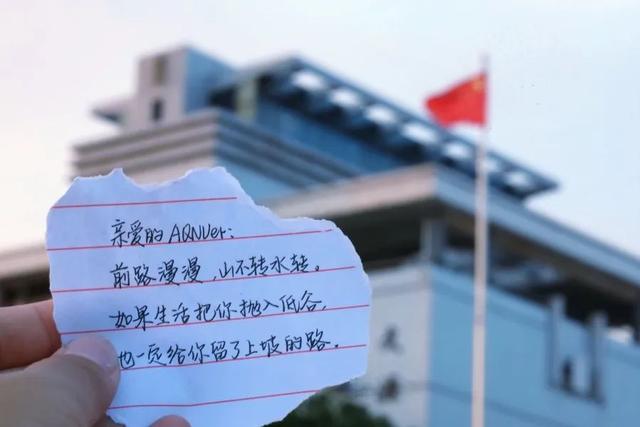 亲爱的AQNUer:
前路漫漫,山不转水转。
如果生活把你抛入低谷,
也一定给你留了上坡的路。